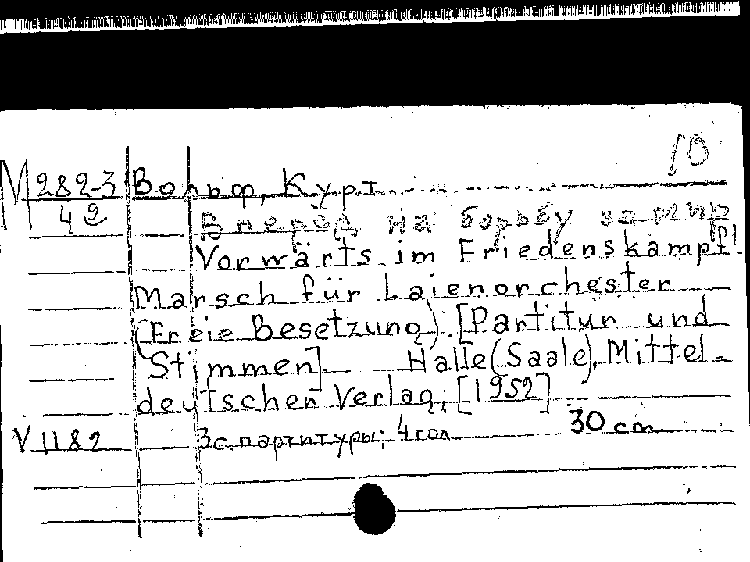 10
М 282-3 Вольф, Курт
4 2 Вперёд на борьбу за мир!
Vorwärts im Friedenskampf!
Marsch für Laienorchester
(Freie Besetzung). [Partitur und
Stimmen]. Halle (Saale), Mittel-
deutscher Verlag, [1952]
V 1182 3с. партитуры; 4 гол. 30 cm